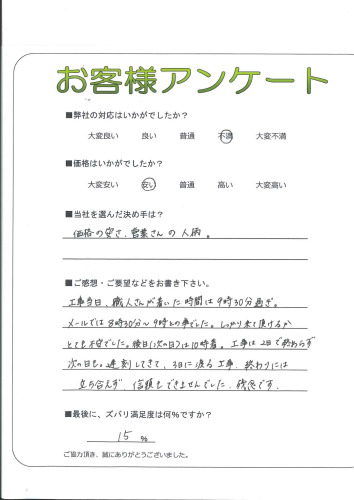 お客様アンケート
■弊社の対応はいかがでしたか?
大変良い 良い 普通 不満 大変不満
■価格はいかがでしたか?
大変安い 安い 普通 高い 大変高い
■当社を選んだ決め手は?
価格の安さ、営業さんの人柄。
■ご感想・ご要望などをお書き下さい。
工事当日、職人さんが着いた時間は9時30分過ぎ。
メールでは8時30分～9時との事でした。しっかり来て頂けるか
とても不安でした。後日(次の日)は10時着。工事は2日で終わらず
次の日も遅刻してきて、3日に渡る工事、終わりには
立ち合えず、信頼もできませんでした。残念です。
■最後に、ズバリ満足度は何%ですか?
15 %
ご協力頂き、誠にありがとうございました。